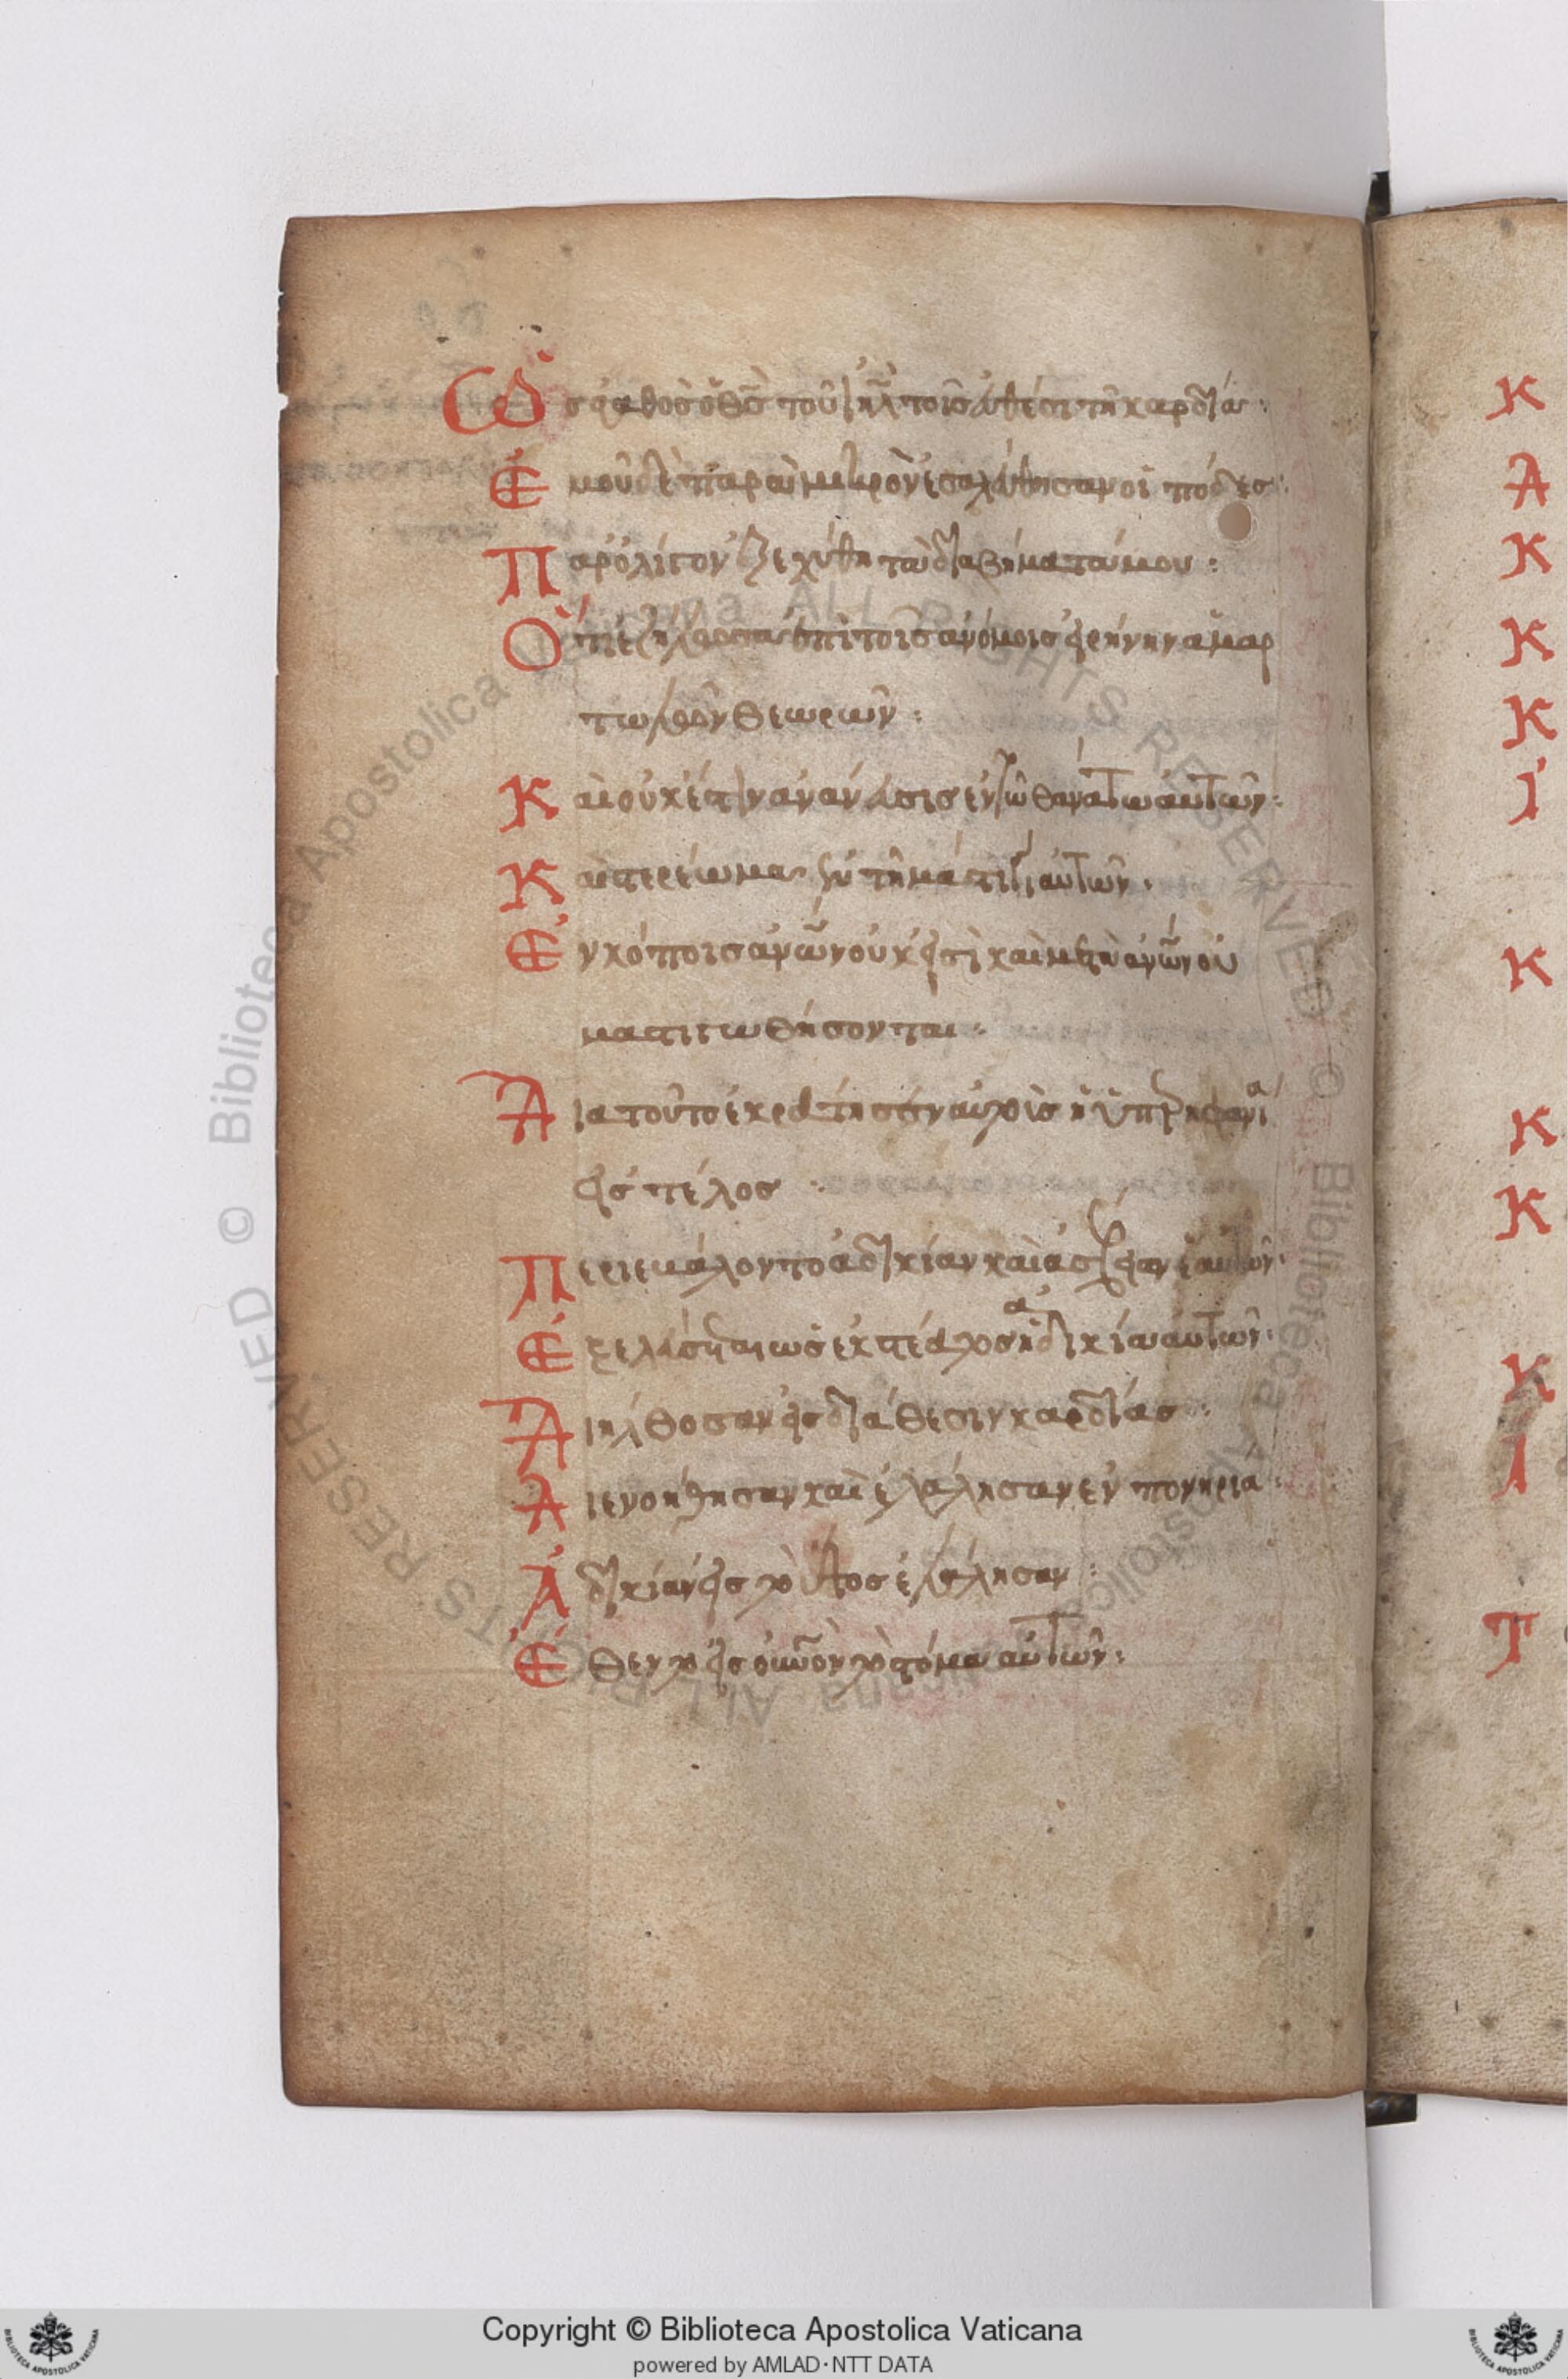 Ὡς ἀγαθὸς ὁ θς τοῦ ιηλ τοῖς εὐθέσι τῆ καρδία:
Ἐμοῦ δὲ παρὰ μικρὸν ἐσαλεύθησαν οἱ πόδες:
Παρ ὀλίγον ἐξεχύθη τὰ διαβήματά μου:
Ὅτι ἐζήλωσα ἐπὶ τοῖς ἀνόμοις εἰρήνην ἁμαρ
τωλῶν θεωρῶν:
Κ αὶ οὐκ ἔστιν ἀνάνευσις ἐν τῶ θανάτω αὐτῶν:
Κ αὶ στερέωμα ἐν τῆ μάστιγι αὐτῶν:
Ἐν κόποις ανων οὐκ εἰσὶ καὶ μετὰ ανων οὐ
μαστιγωθήσονται:
Διατοῦτο ἐκράτησεν αὐτοὺς ἡ ὑπερηφανία
εἰς τέλος :
Περιεβάλοντο ἀδικίαν καὶ ἀσέβειαν ἑαυτῶν:
Ἐξελεύσεται ὡς ἐκ στέατος ἡ ἀδικία αὐτῶν:
Διήλθοσαν εἰς διάθεσιν καρδίας :
Διενοήθησαν καὶ ἐλάλησαν ἐν πονηρία:
Ἀδικίαν εἰς τὸ ὕψος ἐλάλησαν:
Ἔθεντο εἰς οὐνον τὸ στόμα αὐτῶν:
Κ
Α
Κ
Κ
Κ
Ι
Κ
Κ
Κ
Κ
Ι
Τ
Copyright © Biblioteca Apostolica Vaticana
powered by AMLAD·NTT DATA